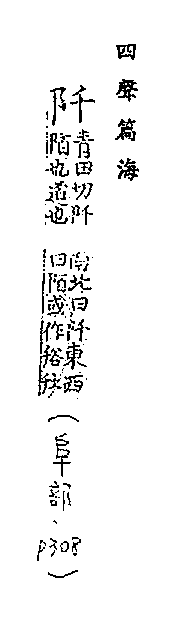 四聲篇海
阡
青田切阡
陌也道也
南北曰阡東西
曰陌或作
(阜部、p308)